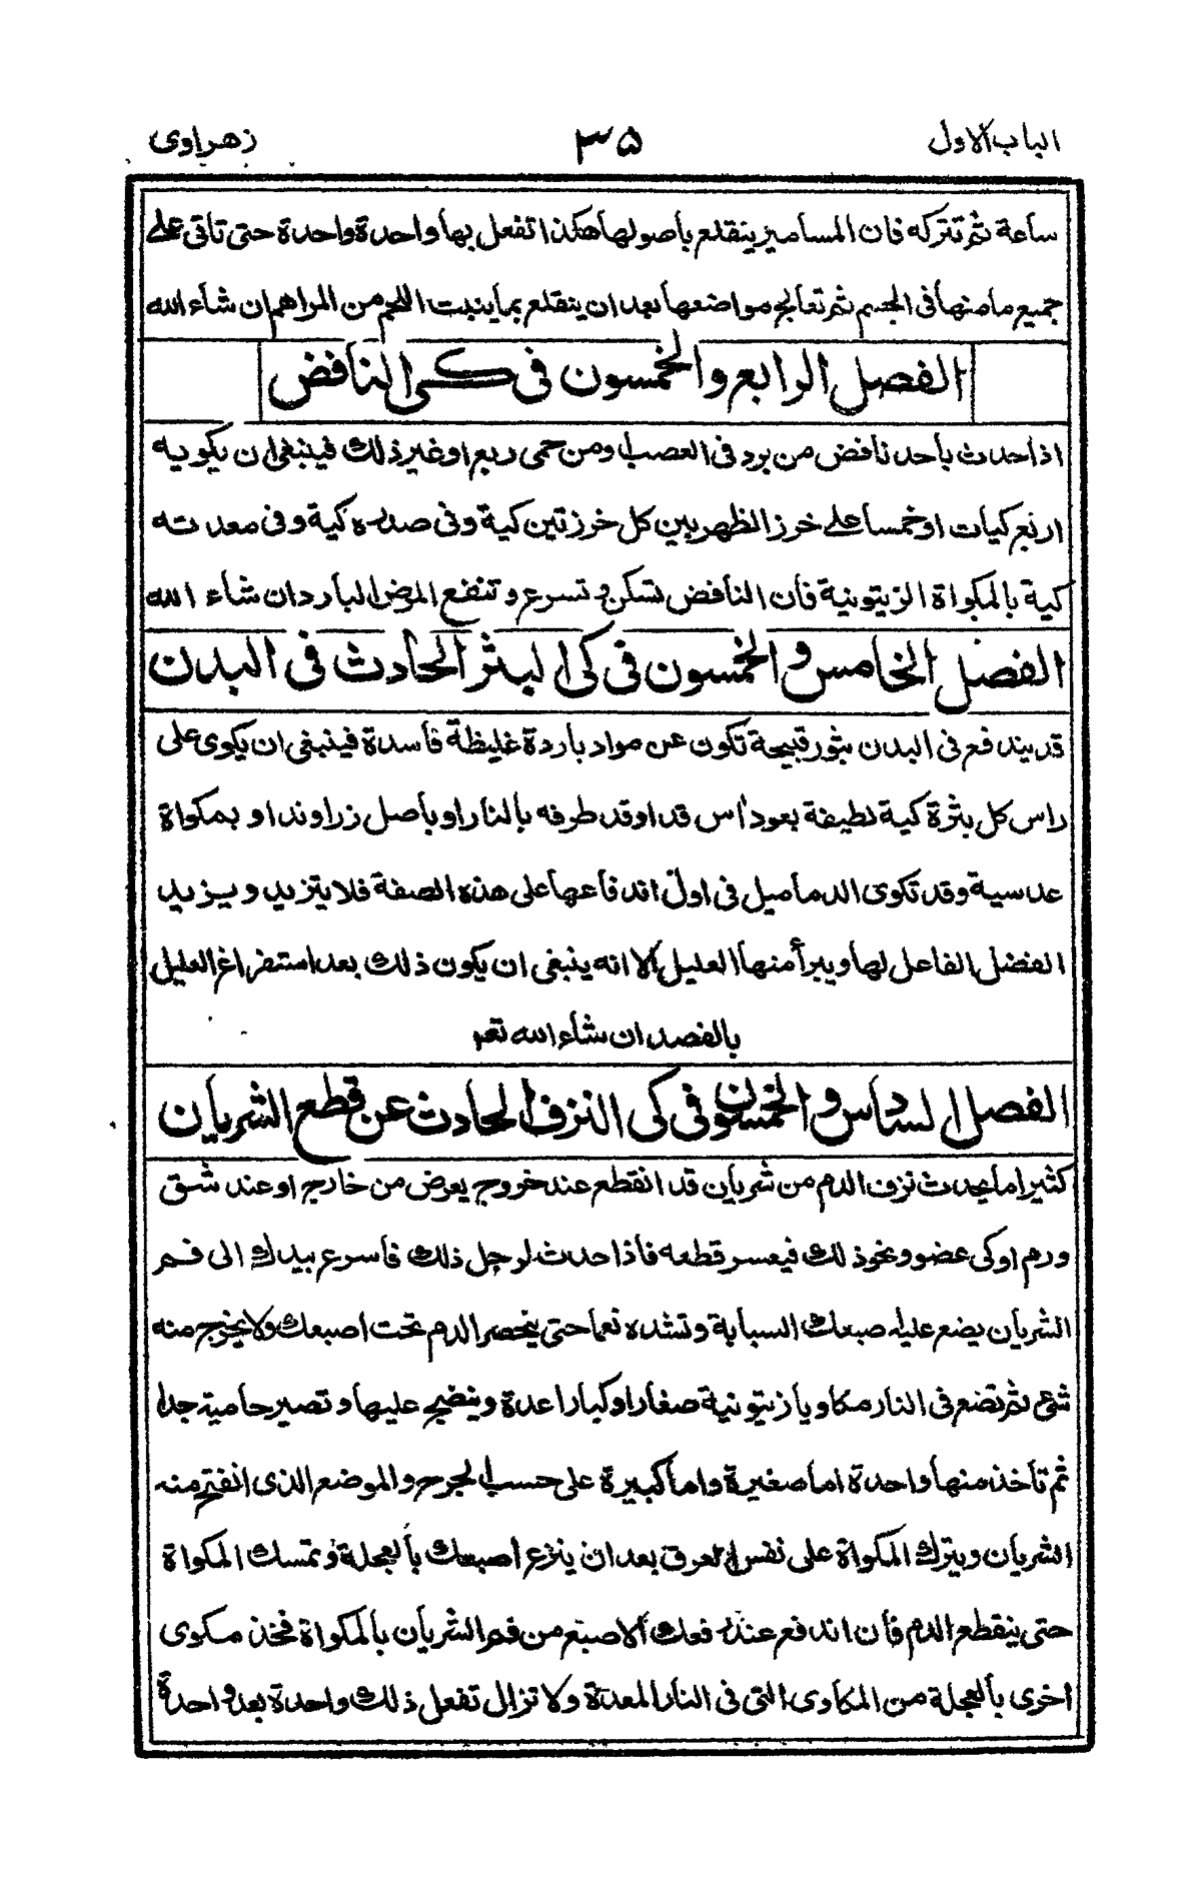 الباب الاول ۳۵ زهراوى
ساعة ثم تتركه فان المسامير ينقلع باصولها هكذا تفعل بها واحدة واحدة حتى تاتى على
جميع ما منها فى الجسم ثم تعالج مواضعها بعد ان ينقلع بما ينبت اللحم من المراهم ان شاء الله
الفصل الرابع والخمسون فى كى النافض
اذا حدث باحد نافض من برد فى العصب او من حمى ربع او غير ذلك فينبغى ان يكويه
اربع كيات او خمسا على خرز الظهر بين كل خرزتين كية وفى صدره كية وفى معدته
كية بالمكواة الزيتونية فان النافض تسكن وتسرع وتنفع المرض البارد ان شاء الله
الفصل الخامس والخمسون فى كى البثر الحادث فى البدن
قد يندفع فى البدن بثور قبيحة تكون عن مواد باردة غليظة فاسدة فينبغى ان يكوى على
راس كل بثرة كية لطيفة بعود اس قد اوقد طرفه بالنار او باصل زراوند او بمكواة
عدسية وقد تكوى الدماميل فى اول اندفاعها على هذه الصفة فلا يتزيد ويزيد
الفضل الفاعل لها ويبرأ منها العليل الا انه ينبغى ان يكون ذلك بعد استفراغ العليل
بالفصد ان شاء الله تعم
الفصل السادس والخمسون فى كى النزف الحادث عن قطع الشريان
كثيرا ما يحدث نزف الدم من شريان قد انقطع عند خروج يعرض من خارج او عند شق
ورم او كى عضو ونحو ذلك فيعسر قطعه فاذا حدث لرجل ذلك فاسرع بيدك الى فم
الشريان يضع عليه صبعك السبابة وتشده نعما حتى ينحصر الدم تحت اصبعك ولا يخرج منه
شئ ثم تضع فى النار مكاويا زيتونية صغارا وكبارا عدة وينضج عليها وتصير حامية جدا
ثم تاخذ منها واحدة اما صغيرة واما كبيرة على حسب الجرح والموضع الذى انفتح منه
الشريان ويترك المكواة على نفس العرق بعد ان ينزع اصبعك بالعجلة وتمسك المكواة
حتى ينقطع الدم فان اندفع عند رفعك الاصبع من فم الشريان بالمكواة فخذ مكوى
اخرى بالعجلة من المكاوى التى فى النار المعدة ولا تزال تفعل ذلك واحدة بعد واحدة